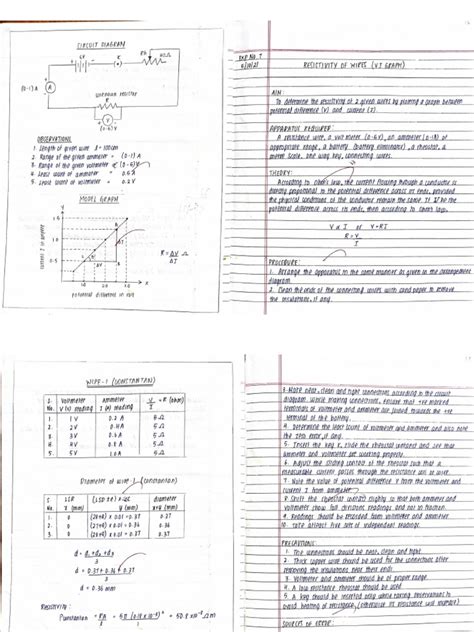 CIRCUIT DIAGRAM
6V
K
Rh
(0-1) A
A
UNKNOWN RESISTOR
R
V
(0-6) V
OBSERVATIONS
1. Length of given wire l = 100cm
2. Range of the given ammeter = (0-1) A
3. Range of the given voltmeter = (0-6) V
4. Least count of ammeter =
5. Least count of voltmeter = 0.2 V
MODEL GRAPH
Y
1.5
1.0
0.5
CURRENT I in ampere
ΔI
ΔV
R = ΔV Ω
ΔI
1.0 2.0 3.0
X
Potential difference in volt
EXP NO. 1
RESISTIVITY OF WIRES (VI GRAPH)
AIM:
To determine the resistivity of 2 given wires by plotting a graph between
potential difference (V) and current (I).
APPARATUS REQUIRED:
A resistance wire, a volt meter (0-6V), an ammeter (0-1A) of
appropriate range, a battery (battery eliminator), a rheostat, a
meter scale, one way key, connecting wires.
THEORY:
According to Ohm's law, the current flowing through a conductor is
directly proportional to the potential difference across its ends, provided
the physical conditions of the conductor remain the same. If I be
potential difference across its ends, then according to Ohm's law.
V α I or V = RI
R = V
I
PROCEDURE:
1. Arrange the apparatus in the same manner as given in the arrangement
diagram.
2. Clean the ends of the connecting wires with sand paper to remove
the insulations, if any.
WIRE-1 (CONSTANTAN)
S. No. Voltmeter V (V) reading Ammeter I (A) reading V/I = R (ohm)
1 1V 0.2 A 5Ω
2 2V 0.4 A 5Ω
3. 3V
4. 4V 0.8 A 5Ω
5. 5Ω
Diameter of wire 1 (constantan)
S. No. LSR X (mm) (CSD ± e) × LC Y (mm) diameter X+Y (mm)
1 0 × 0.01 = 0.37 0.37
2 0 × 0.01 = 0.36 0.36
3 0 × 0.01 = 0.37 0.37
d = d1 + d2 + d3
3
d = 0.37 + 0.36 + 0.37
3
d = 0.36 mm
Resistivity:
3. Make neat, clean and tight connections according to the circuit
diagram. While making connections, ensure that +ve marked
terminals of voltmeter and ammeter are joined towards the +ve
terminal of the battery.
4. Determine the least count of voltmeter and ammeter and also note
the zero error, if any.
5. Insert the key K, slide the rheostat contact and see that
ammeter and voltmeter are working properly.
6. Adjust the sliding contact of the rheostat such that a
measurable current passes through the resistance coil or wire.
7. Note the value of potential difference V from the voltmeter and
current I from ammeter.
8. Shift the rheostat contact slightly so that both ammeter and
voltmeter show full divisions readings and not in fraction.
9. Readings should be recorded from voltmeter and ammeter
10. Take atleast five set of independent readings.
PRECAUTIONS:
1. The connections should be neat, clean and tight.
2. Thick copper wire should be used for the connections after
removing the insulations near their ends.
3. Voltmeter and ammeter should be of proper range.
4. A low resistance rheostat should be used.
5. A key should be inserted only while taking observations to
avoid heating of resistance (otherwise its resistance will increase)
SOURCES OF ERROR: